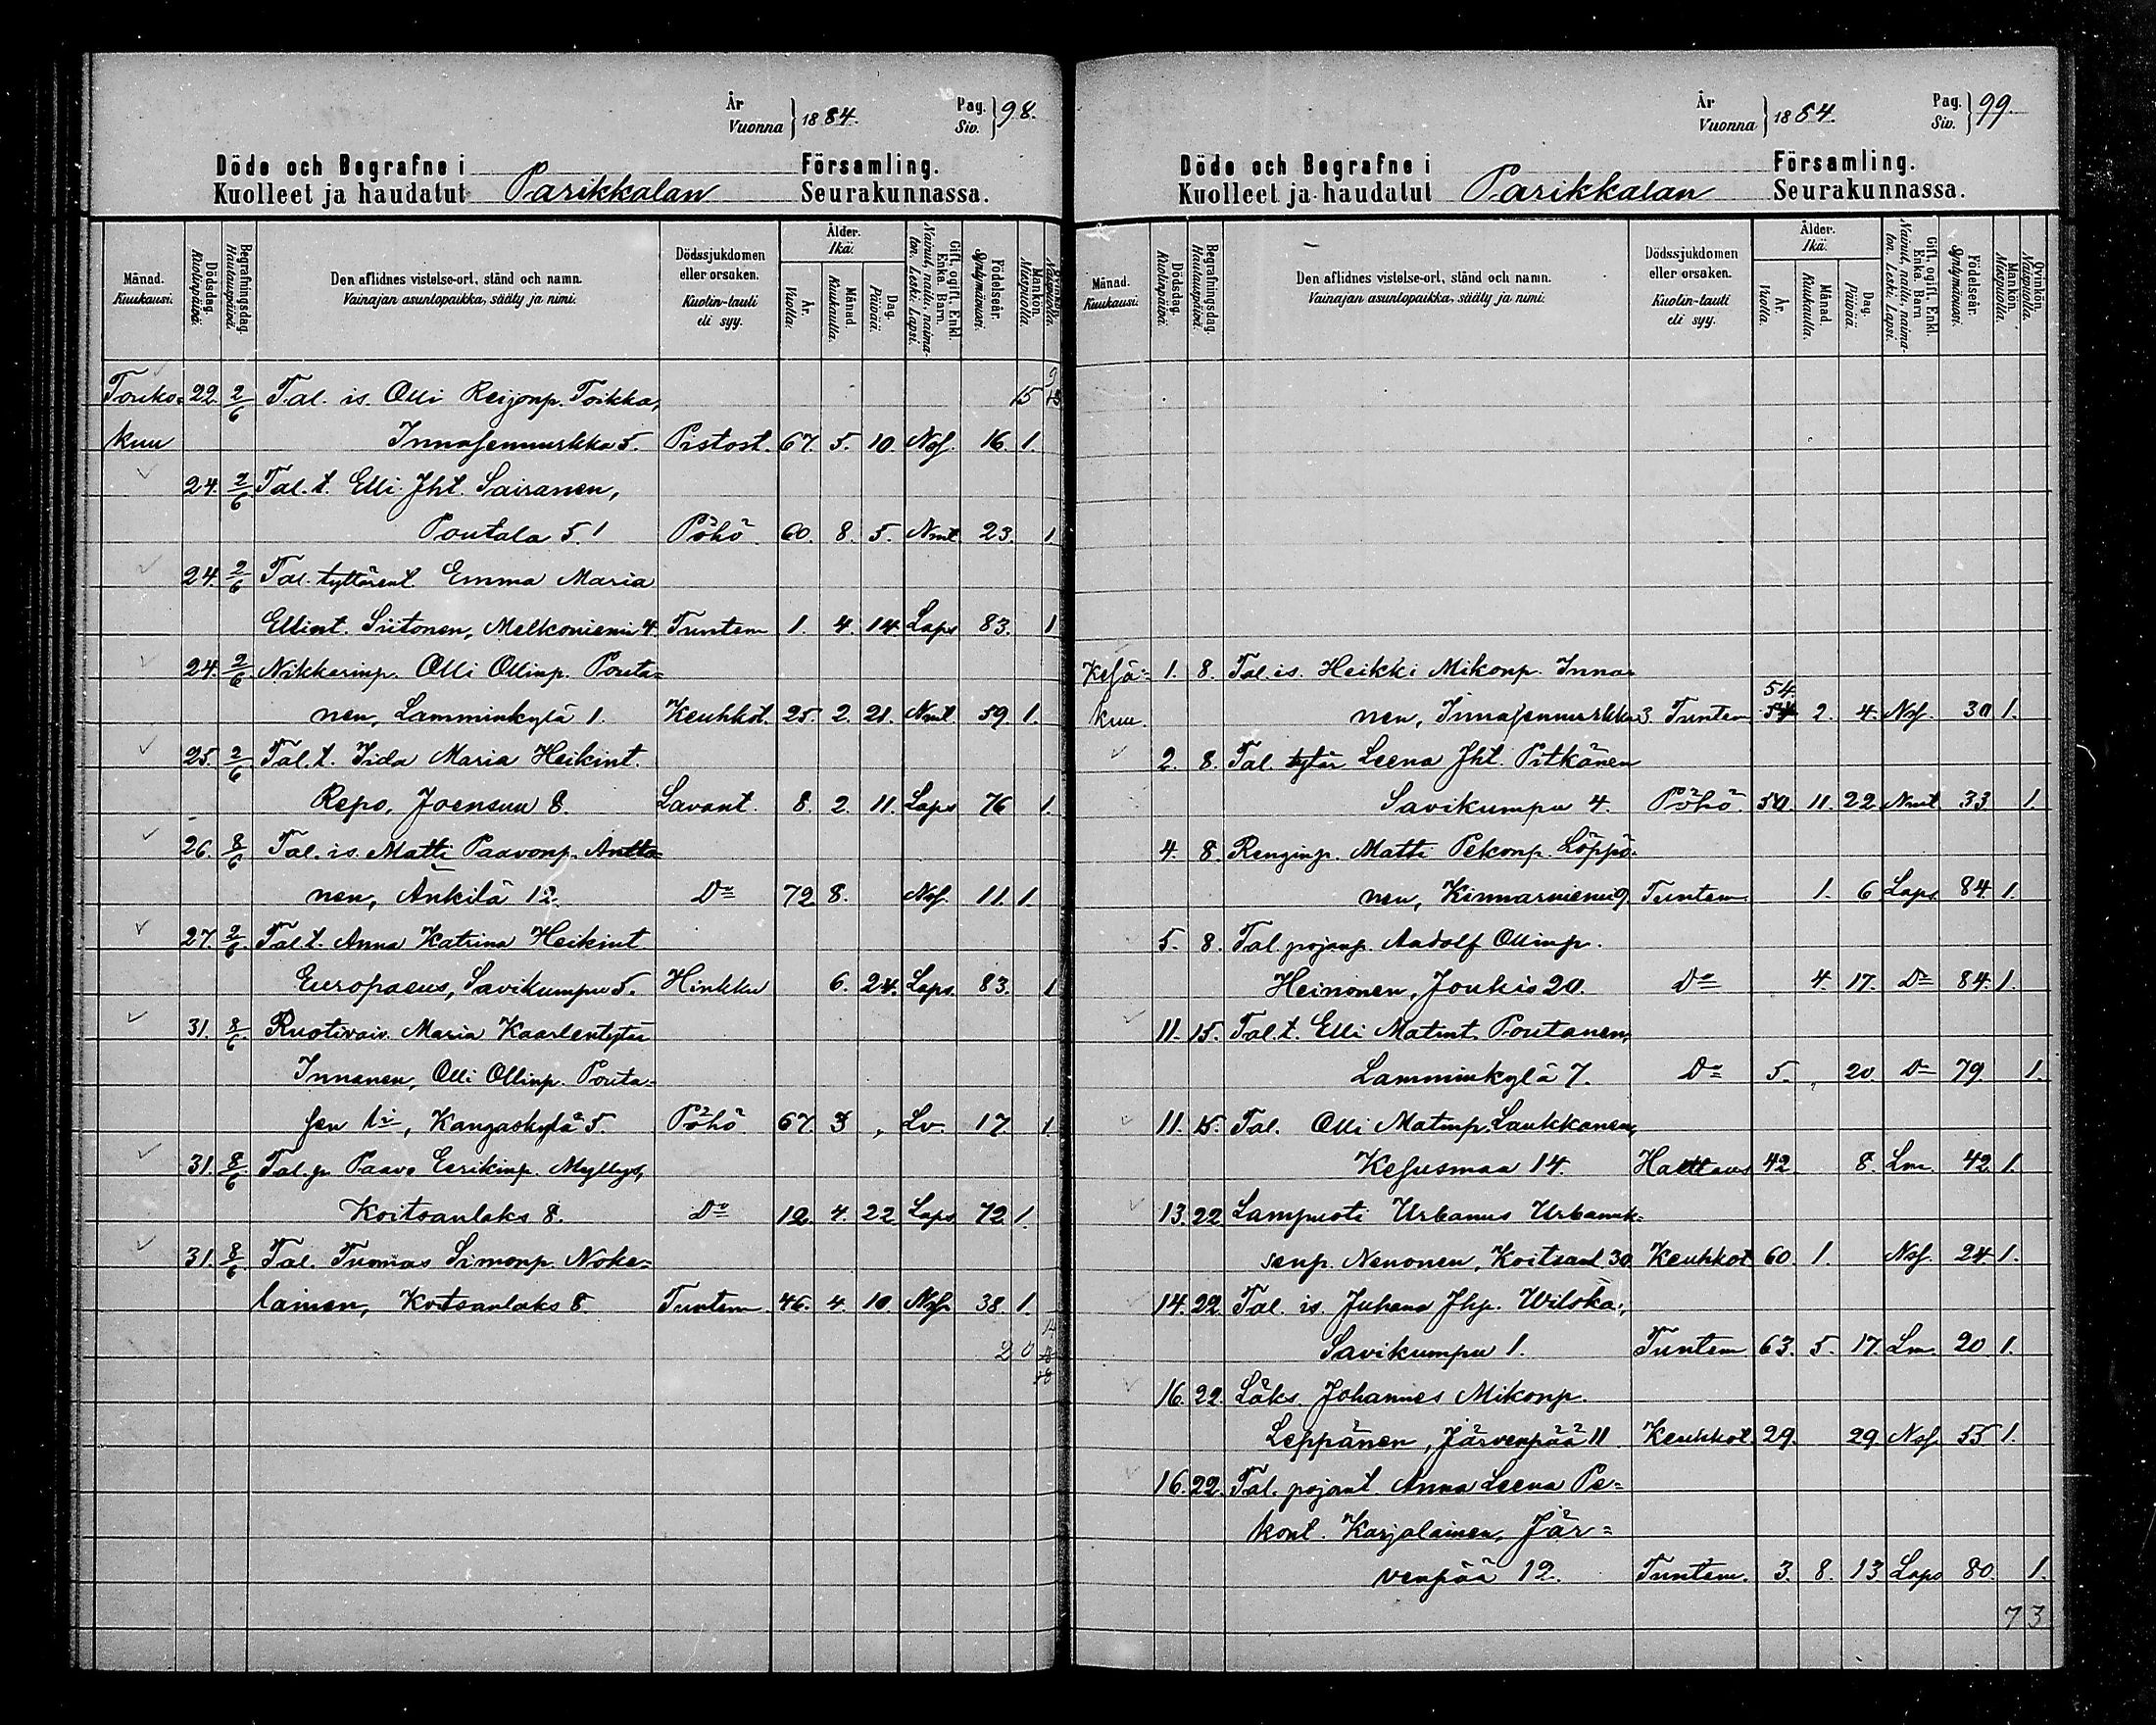 År
Vuonna } 1884.
Pag.
Siv. } 98.
Döde och Begrafne i Församling.
Kuolleet ja haudatut Parikkalan Seurakunnassa.
Månad. Kuukausi.
Dödsdag. Kuolinpäivä.
Begrafningsdag. Hautauspäivä.
Den aflidnes vistelse-ort, stånd och namn.
Vainajan asuntopaikka, sääty ja nimi.
Dödssjukdomen eller orsaken.
Kuolin-tauti eli syy.
Ålder. Ikä.
År. Vuotta.
Månad. Kuukautta.
Dag. Päivää.
Gift, ogift, Enkl. Enka. Barn.
Nainut, naitu, naimaton. Leski. Lapsi.
Födelseår. Syntymävuosi.
Mankön. Miespuolia.
Qvinkön. Naispuolia.
Touko- 22. 2/6 Tal. is. Olli Reijonp. Toikka, 15
kuu Innasenmurkka 5. Pistost. 67. 5. 10. Nsf. 16. 1.
24. 2/6 Tal. t. Elli Jht. Sairanen,
Poutala 5. Pöhö 60. 8. 5. Nmt. 23. 1.
24. 2/6 Tal. tyttärent. Emma Maria
Ellint. Siitonen, Melkoniemi 4. Tuntem 1. 4. 14. Laps 83. 1
24. 2/6 Nikkarinp. Olli Ollinp. Pouta=
nen, Lamminkylä 1. Keuhkot. 25. 2. 21. Nmt. 59. 1.
25. 2/6 Tal. t. Iida Maria Heikint.
Repo, Joensuu 8. Lavant. 8. 2. 11. Laps 76 1.
26. 8/6 Tal. is. Matti Paavonp. Antto=
nen, Änkilä 12. Do 72 8. Nsf. 11. 1.
27. 2/6 Tal. t. Anna Katrina Heikint
Europaeus, Savikumpu 5. Hinkku 6. 24. Laps. 83. 1
31. 8/6 Ruotivaiv. Maria Kaarlentytär
Innanen, Olli Ollinp. Pouta-
sen li, Kangaskylä 5. Pöhö 67. 3 „ Lv. 17 1.
31. 8/6 Tal. p. Paavo Eerikinp. Myllys,
Koitsanlaks 8. Do 12. 4. 22 Laps 72 1.
31. 8/6 Tal. Tuomas Simonp. Noke=
lainen, Kotsanlaks 8. Tuntem. 46. 4. 10 Nsf. 38. 1.
20
År
Vuonna } 1884.
Pag.
Siv. } 99.
Döde och Begrafne i Församling.
Kuolleet ja haudatut Parikkalan Seurakunnassa.
Månad. Kuukausi.
Dödsdag. Kuolinpäivä.
Begrafningsdag. Hautauspäivä.
Den aflidnes vistelse-ort, stånd och namn.
Vainajan asuntopaikka, sääty ja nimi.
Dödssjukdomen eller orsaken.
Kuolin-tauti eli syy.
Ålder. Ikä.
År. Vuotta.
Månad. Kuukautta.
Dag. Päivää.
Gift, ogift, Enkl. Enka. Barn
Nainut, naitu, naimaton. Leski. Lapsi.
Födelseår. Syntymävuosi.
Mankön. Miespuolia.
Qvinkön. Naispuolia.
Kesä- 1. 8. Tal. is. Heikki Mikonp. Inna-
kuu. nen, Innasenmurkka 3. Tuntem 54. 2. 4. Nsf. 30 1.
2. 8. Tal. tytär Leena Jht. Pitkänen
Savikumpu 4. Pöhö. 50. 11. 22. Nmt 33 1.
4. 8. Renginp. Matti Pekonp. Löppö-
nen, Kinnarniemi 9. Tuntem. 1. 6 Laps 84. 1.
5. 8. Tal. pojanp. Aadolf Ollinp.
Heinonen, Joukio 20. Do 4. 17. Do 84. 1.
11. 15. Tal. t. Elli Matint. Poutanen,
Lamminkylä 7. Do 5. „ 20. Do 79. 1.
11. 15. Tal. Olli Matinp. Laukkanen,
Kesusmaa 14. Halttaus 42. 8. Lm. 42. 1.
13. 22. Lampuoti Urbanus Urbanuk=
senp. Nenonen, Koitsanl. 30. Keuhkot 60. 1. Nsf. 24. 1.
14. 22. Tal. is. Juhana Jhp. Wilska,
Savikumpu 1. Tuntem 63. 5. 17. Lm. 20. 1.
16. 22. Läks. Johannes Mikonp.
Leppänen, Järvenpää 11. Keuhkot. 29. 29. Nsf. 55 1.
16. 22. Tal. pojant. Anna Leena Pe=
kont. Karjalainen, Jär=
venpää 12. Tuntem. 3. 8. 13 Laps 80. 1.
7 3